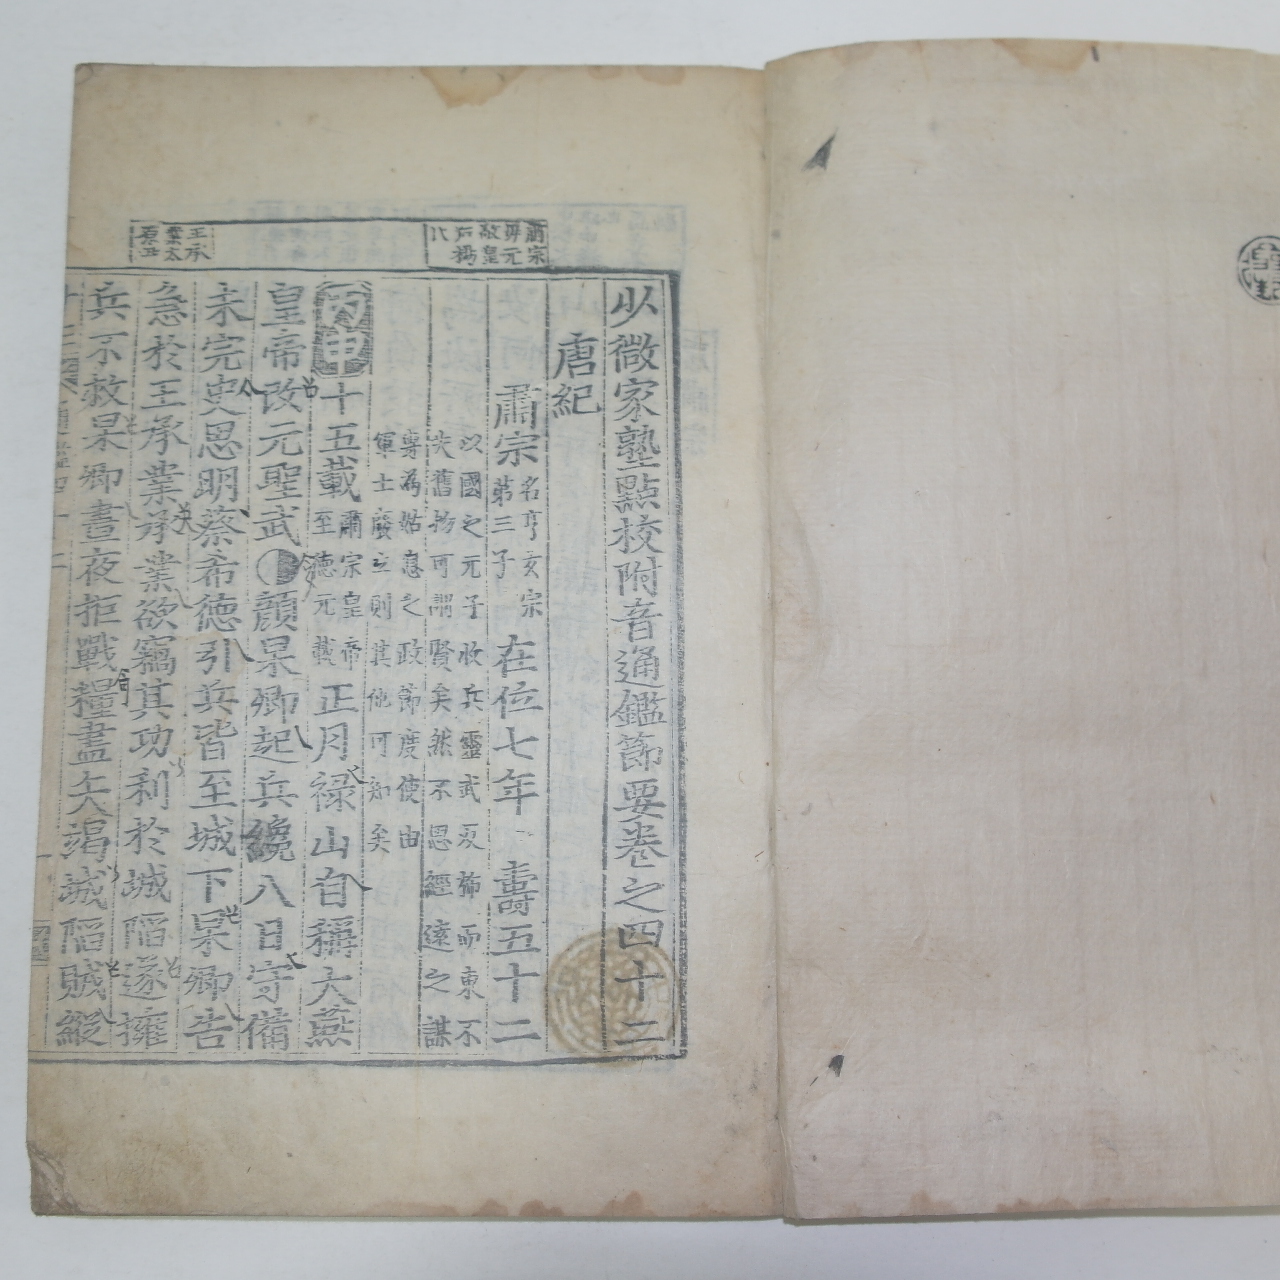 少微家塾點校附音通鑑節要卷之四十二
唐紀
肅宗名亨玄宗第三子在位七年壽五十二
以國之元子收兵靈武反斾而東不
失舊物可謂賢矣然不思經遠之謀
專爲姑息之政節度使由
軍士廢立則其他可知矣
丙申十五載肅宗皇帝至德元載正月禄山自稱大燕
皇帝改元聖武顔杲卿起兵纔八日守備
未完史思明蔡希德引兵皆至城下杲卿告
急於王承業承業欲竊其功利於城陷遂擁
兵不救杲卿晝夜拒戰糧盡矢竭城陷賊縱
肅宗
王承
業太
原尹